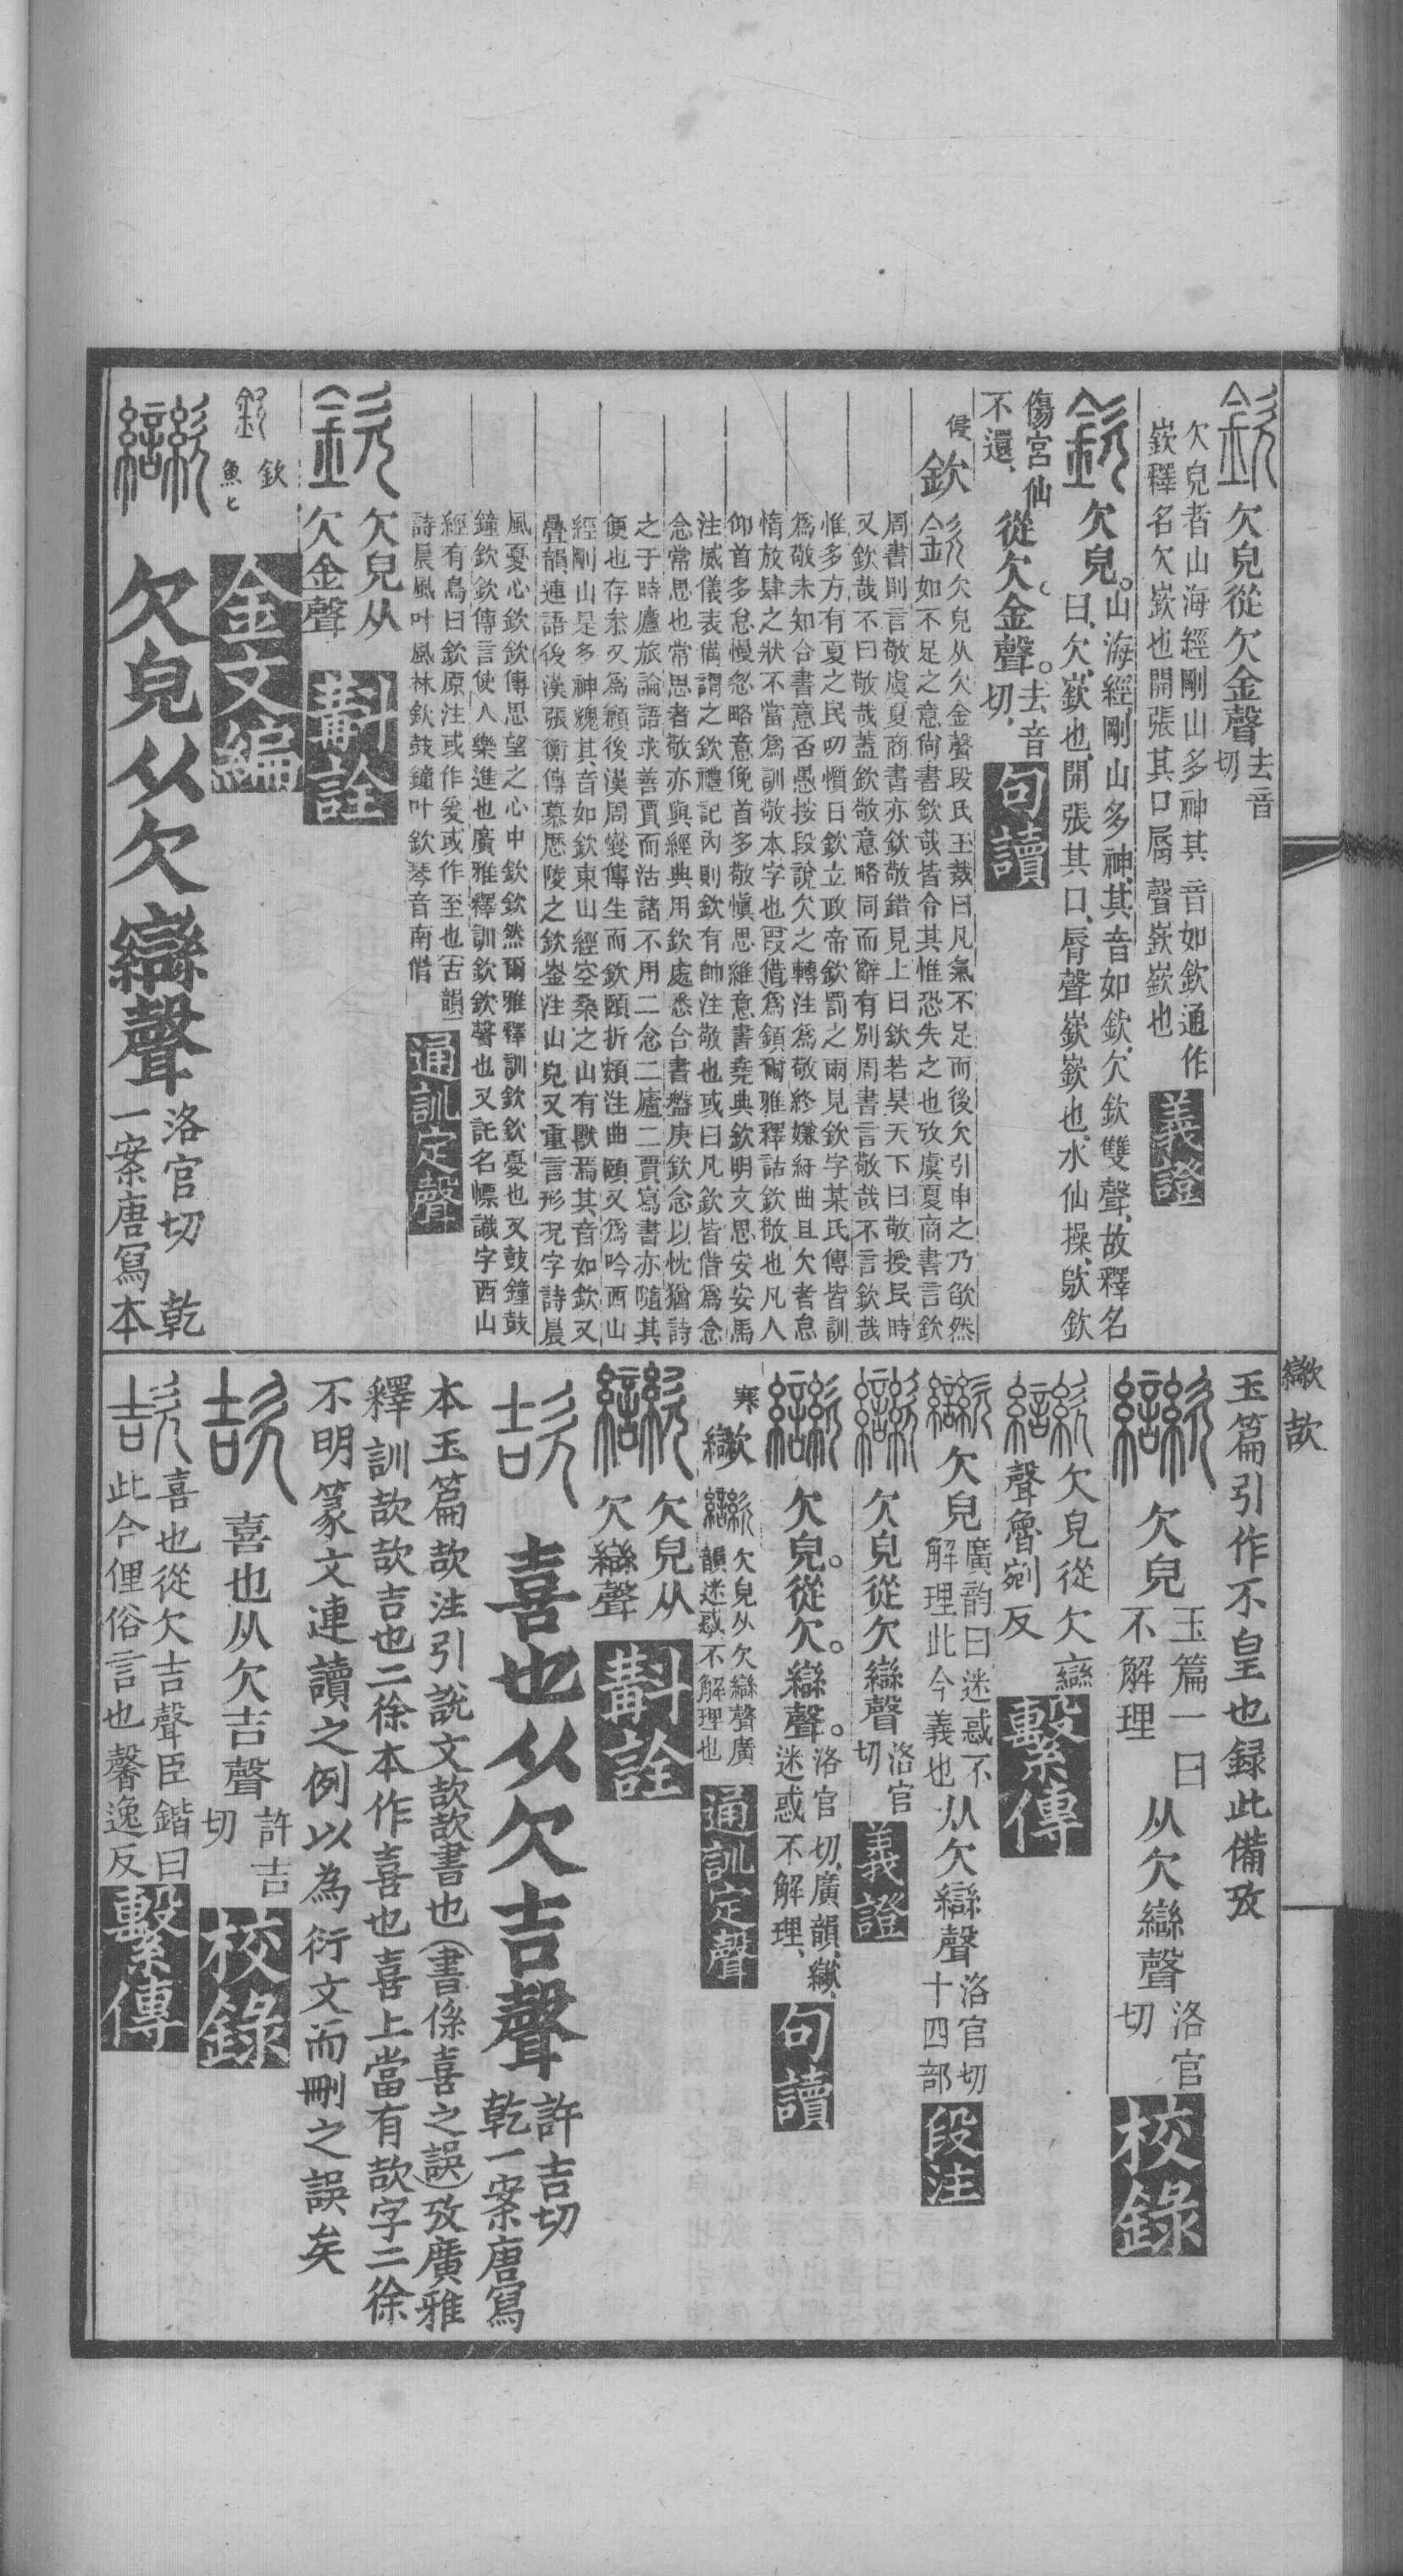 欠皃從欠金聲去音切
欠皃者山海經剛山多神其音如欽通作
嶔釋名欠嶔也開張其口脣聲嶔嶔也
義證
欠皃。山海經剛山多神、其音如欽、欠欽雙聲、故釋名
曰、欠、嶔也、開張其口、脣聲嶔嶔也、水仙操、歍欽
傷宮仙
不還、
從欠。金聲。去音切、
句讀
侵
欽
欠皃从欠金聲段氏玉裁曰凡氣不足而後欠引申之乃欿然
如不足之意尙書欽哉皆令其惟恐失之也攷虞夏商書言欽
周書則言敬虞夏商書亦欽敬錯見上曰欽若昊天下曰敬授民時
又欽哉不曰敬哉蓋欽敬意略同而辭有別周書言敬哉不言欽哉
惟多方有夏之民叨懫日欽立政帝欽罰之兩見欽字某氏傳皆訓
爲敬未知合書意否愚按段說欠之轉注爲敬終嫌紆曲且欠者怠
惰放肆之狀不當爲訓敬本字也叚借爲顉爾雅釋詁欽敬也凡人
仰首多怠慢忽略意俛首多敬愼思維意書堯典欽明文思安安馬
注威儀表備謂之欽禮記內則欽有帥注敬也或曰凡欽皆借爲念
念常思也常思者敬亦與經典用欽處悉合書盤庚欽念以忱猶詩
之于時廬旅論語求善賈而沽諸不用二念二廬二賈寫書亦隨其
便也存參又爲顉後漢周燮傳生而欽頤折頞注曲頤又爲吟西山
經剛山是多神䰠其音如欽東山經空桑之山有獸焉其音如欽又
疊韻連語後漢張衡傳慕歷陵之欽崟注山皃又重言形況字詩晨
風憂心欽欽傳思望之心中欽欽然爾雅釋訓欽欽憂也又鼓鐘鼓
鐘欽欽傳言使人樂進也廣雅釋訓欽欽聲也又託名幖識字西山
經有鳥曰欽原注或作爰或作至也古韻
詩晨風叶風林欽鼓鐘叶欽琴音南僭
通訓定聲
欠皃从
欠金聲
斠詮
欽
魚匕
金文編
欠皃从欠䜌聲
洛官切　乾
一案唐寫本
玉篇引作不皇也録此備攷
欠皃玉篇一曰不解理从欠䜌聲洛官切
校錄
欠皃從欠䜌
聲魯剜反
繫傳
欠皃廣韵曰迷惑不解理此今義也从欠䜌聲洛官切十四部
段注
欠皃從欠䜌聲洛官切
義證
欠皃。從欠。䜌聲。洛官切、廣韻、𣤈、迷惑不解理、
句讀
寒
𣤈
欠皃从欠䜌聲廣
韻迷惑不解理也
通訓定聲
欠皃从
欠䜌聲
斠詮
喜也从欠吉聲
許吉切
乾一案唐寫
本玉篇欯注引說文欯欯書也(書係喜之誤)攷廣雅
釋訓欯欯吉也二徐本作喜也喜上當有欯字二徐
不明篆文連讀之例以為衍文而刪之誤矣
喜也从欠吉聲許吉切
校錄
喜也從欠吉聲臣鍇曰
此今俚俗言也馨逸反
繫傳
𣤈　欯